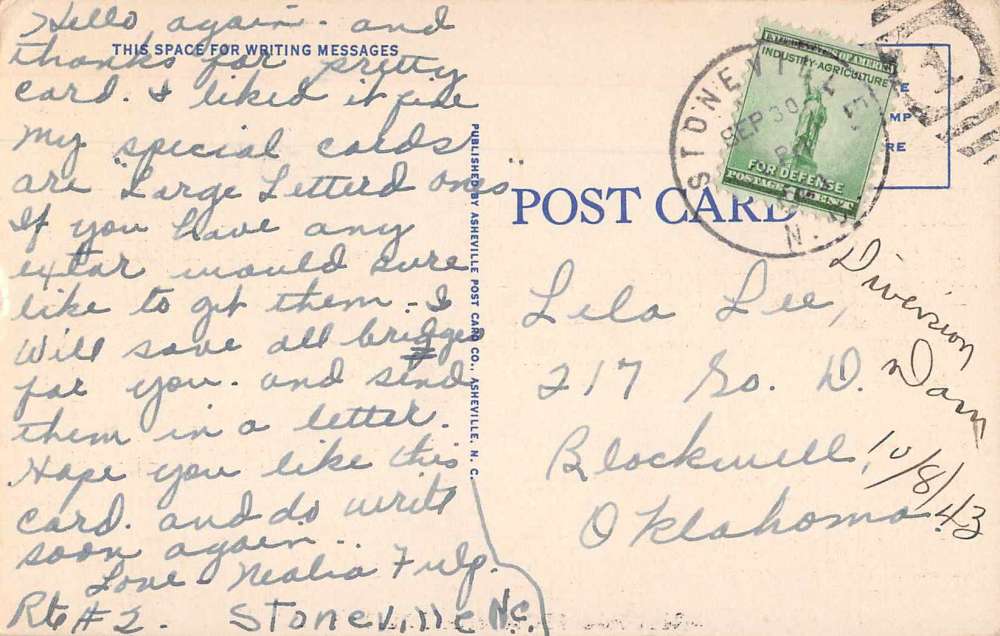 THIS SPACE FOR WRITING MESSAGES
Hello again. and
thanks for pretty
card. I liked it fine
My special cards
are "Large Letterd ones"
If you have any
extar would sure
like to get them - I
will save all bridges
for you. and send
them in a letter.
Hope you like this
card. and do write
soon again.
Love - Nealia Fulp.
Rt #2. Stoneville N.C.
PUBLISHED BY ASHEVILLE POST CARD CO., ASHEVILLE, N. C.
POST CARD
STONEVILLE
SEP 30
N.C.
UNITED STATES OF AMERICA
INDUSTRY-AGRICULTURE
FOR DEFENSE
POSTAGE 1 CENT
E
MP
RE
1
Lela Lee,
217 So. D.
Blackwell,
Oklahoma.
Diversion
Dam
10/8/43